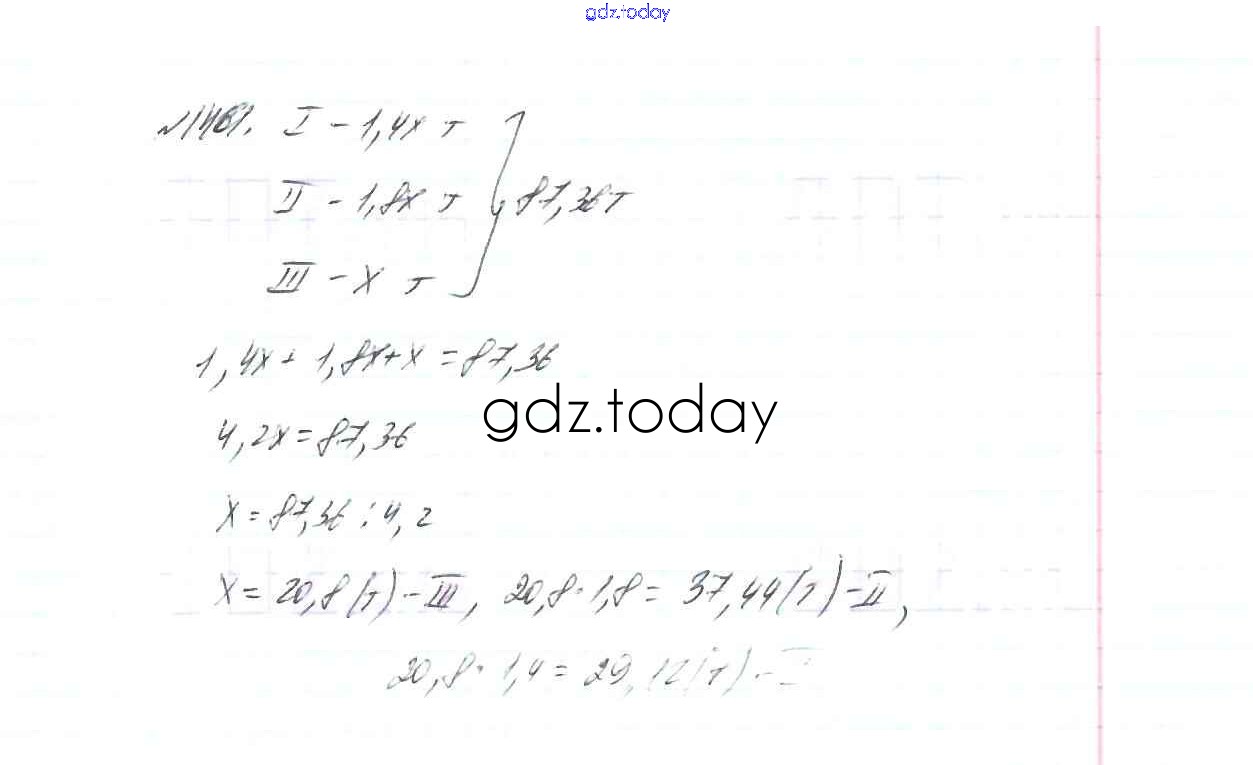 gdz.today
№1461. I - 1,4x т
II - 1,8x т
87,36т
III - x т
1,4x + 1,8x + x = 87,36
gdz.today
4,2x = 87,36
x = 87,36 : 4,2
x = 20,8 (т) - III, 20,8 · 1,8 = 37,44 (т) - II,
20,8 · 1,4 = 29,12 (т) - I